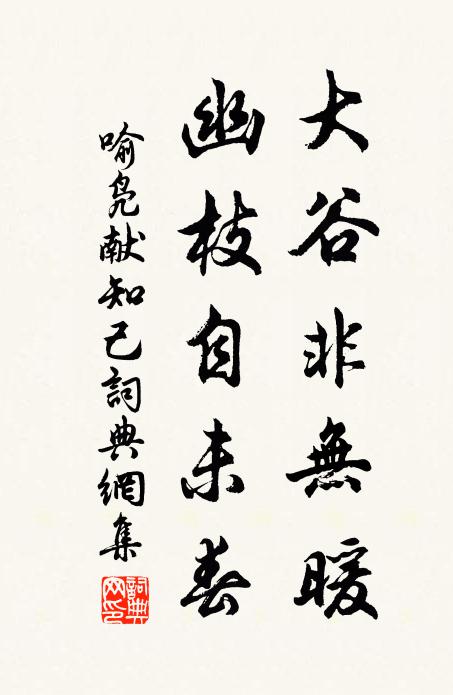 大谷非無暖
幽枝自未春
喻凫献知己詞典網集
詞典網印